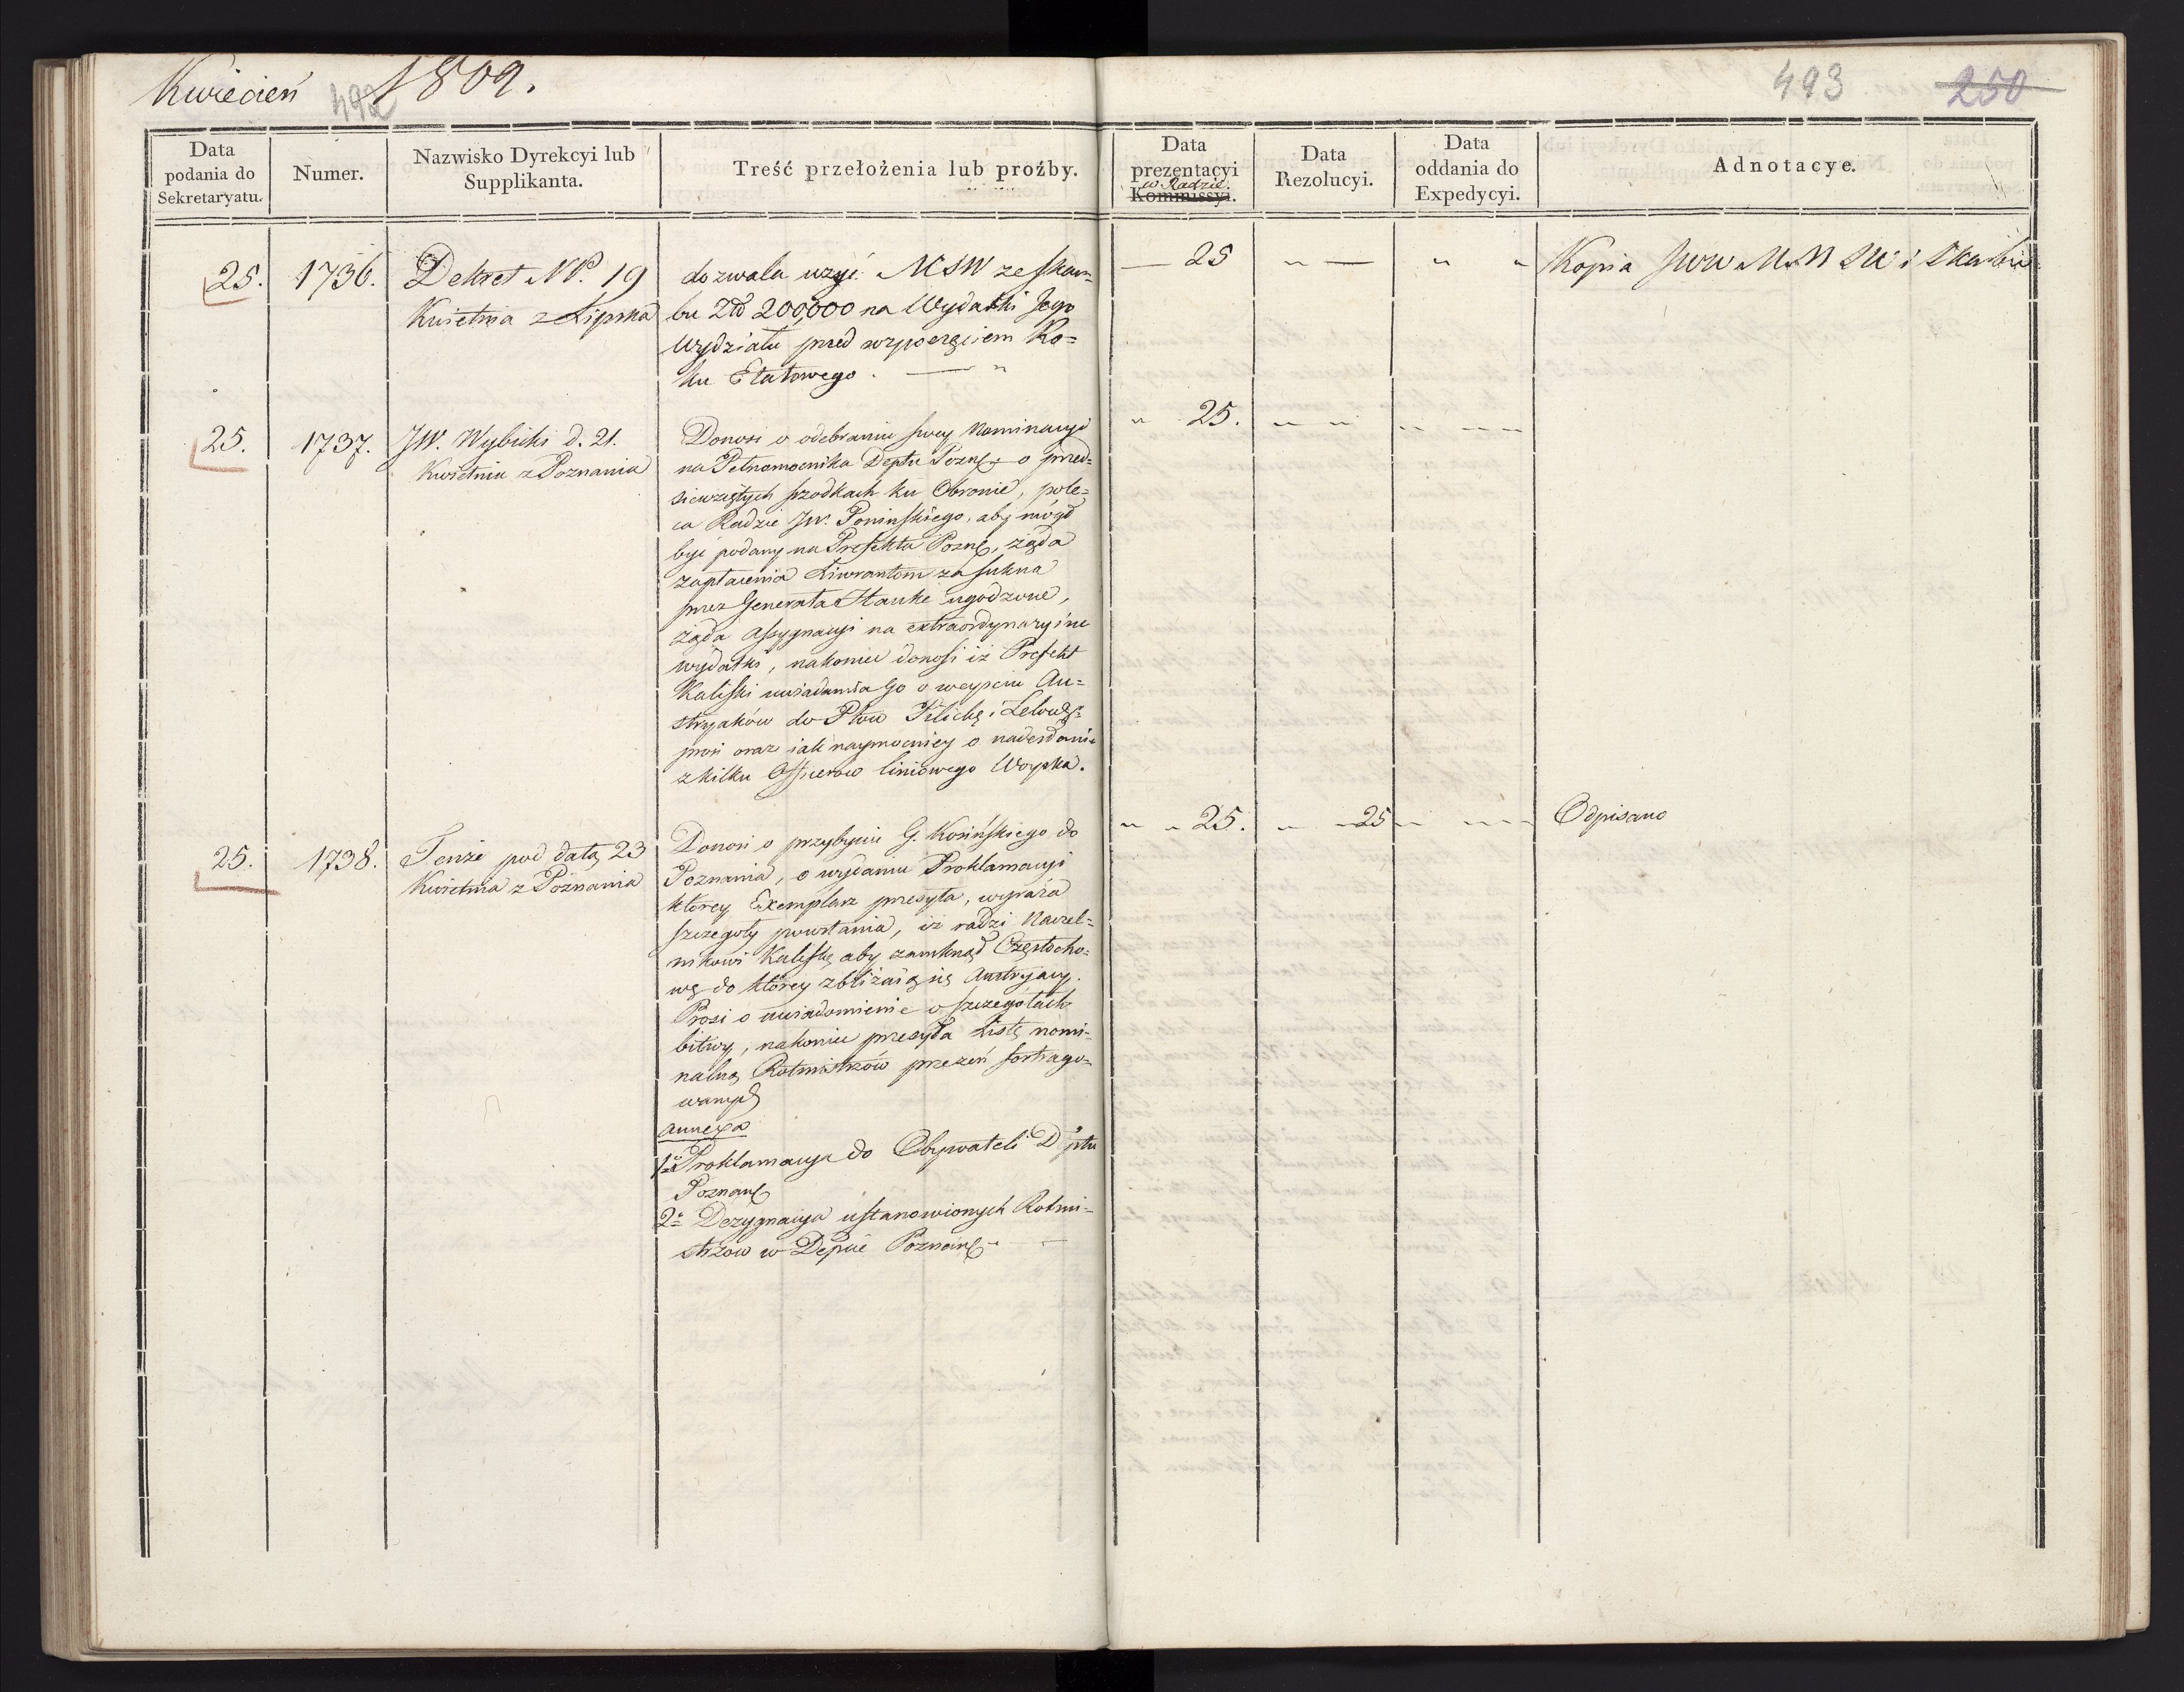 Kwiecień 492 1809.
493 250
Data podania do Sekretaryatu.
Numer.
Nazwisko Dyrekcyi lub Supplikanta.
Treść przełożenia lub proźby.
Data prezentacyi w Radzie. Kommissyi.
Data Rezolucyi.
Data oddania do Expedycyi.
Adnotacye.
25.
1736.
Dekret NP. 19
Kwietnia z Lipska
dozwala użyć MSW ze skar=
bu Złł 200,000 na Wydatki Jego
Wydziału przed rozpoczęciem Ro=
ku Etatowego.
25
Kopia JWW MM SW i Skarbu
25.
1737.
JW. Wybicki d. 21.
Kwietnia z Poznania
Donosi o odebraniu swey Nominacyi
na Pełnomocnika Deptu Pozn: o przed=
siewziętych srzodkach ku Obronie, pole=
ca Radzie JW. Poninskiego, aby mógł
być podany na Prefekta Pozn, żąda
zapłacenia Liwrantom za sukna
przez Generała Hauke ugodzone,
żąda assygnacyi na extraordynaryine
wydatki, nakoniec donosi iż Prefekt
Kaliski uwiadamia Go o weyściu Au=
stryaków do Ptow Pilickę i Lelows:
prosi oraz iak naymocniey o nadesłanie
z kilku Officerow liniowego Woyska.
25.
25.
1738.
Tenże pod datą 23
Kwietnia z Poznania
Donosi o przybyciu G. Kosińskiego do
Poznania, o wydaniu Proklamacyi
ktorey Exemplarz przesyła, wyraża
szczegoły powstania, iż radzi Naczel=
nikowi Kalisk aby zamknął Częstocho=
wę do ktorey zbliżaią się Austryacy.
Prosi o uwiadomienie o szczegółach
bitwy, nakoniec przesyła Listę nomi=
nalną Rotmistrzów przezeń
wanych
annexa
1o Proklamacya do Obywateli Dptu
Poznans
2o Dezygnacya ustanowionych Rotmi=
strzow w Depcie Poznans
25.
25
Odpisano